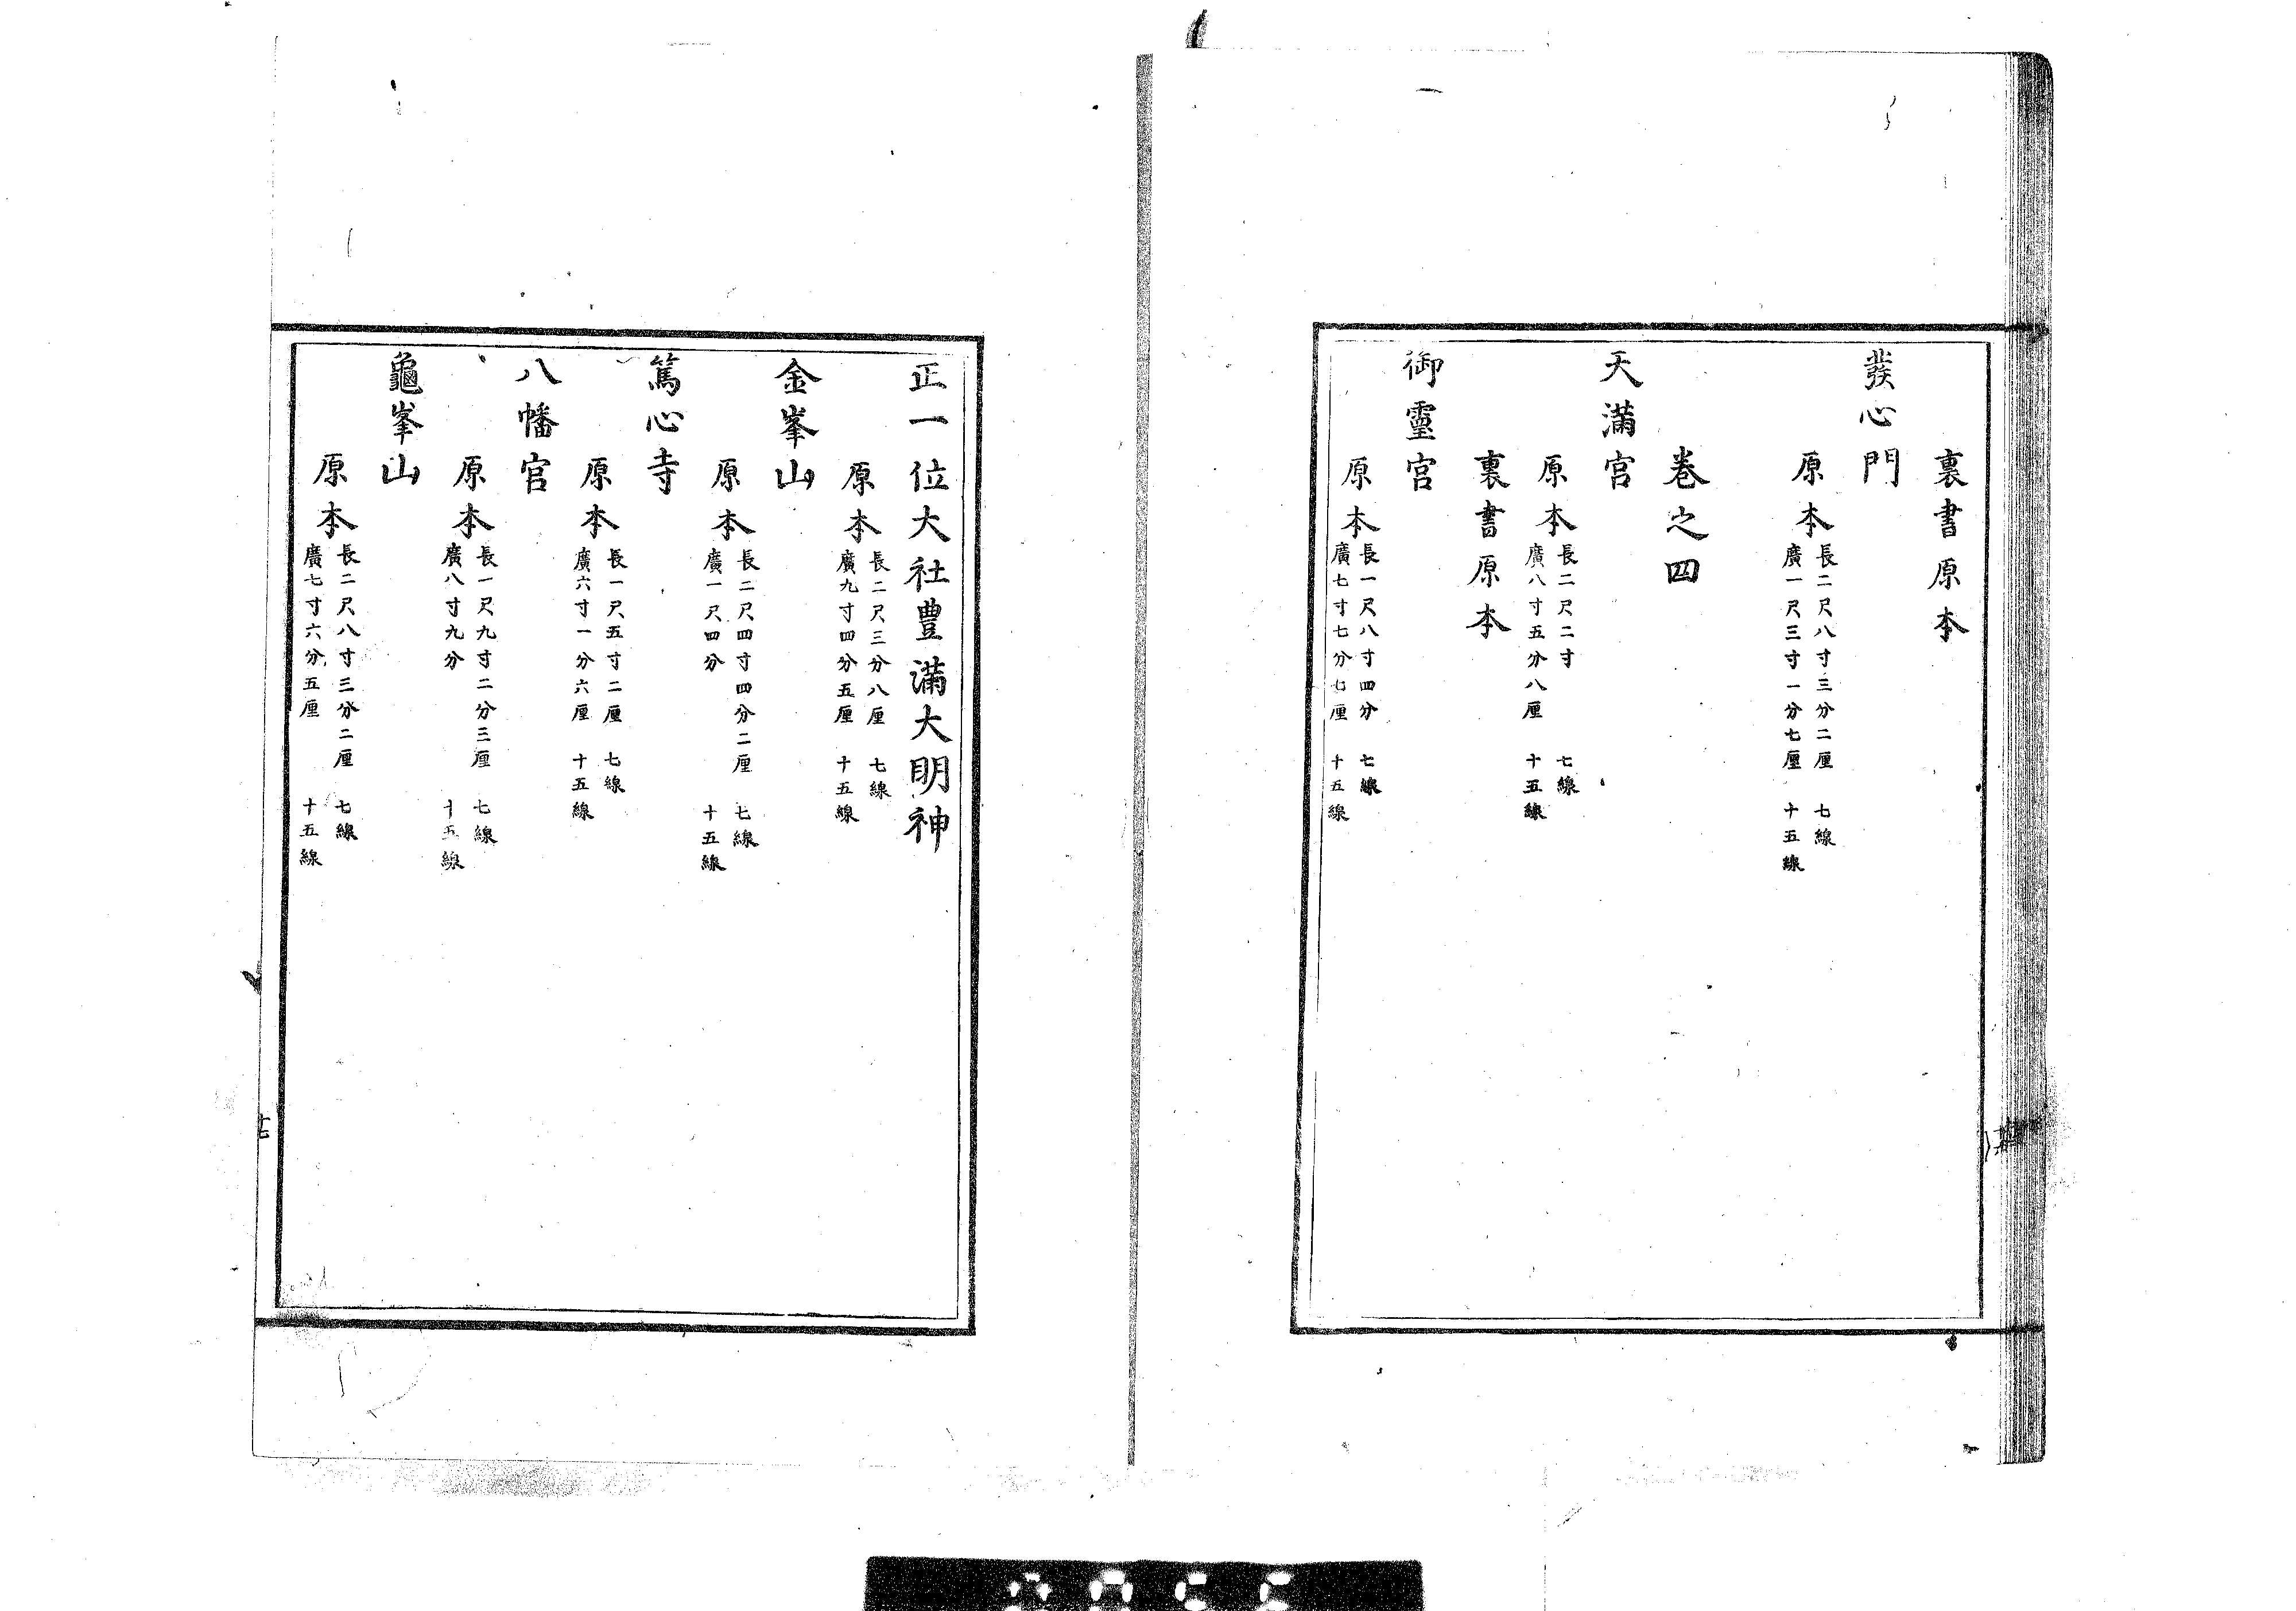 裏書原本
發心門
原本
長二尺八寸三分二厘 七線
廣一尺三寸一分七厘 十五線
卷之四
天滿宮
原本
長二尺二寸 七線
廣八寸五分八厘 十五線
裏書原本
御靈宮
原本
長一尺八寸四分 七線
廣七寸七分七厘 十五線
正一位大社豊滿大明神
原本
長二尺三分八厘 七線
廣九寸四分五厘 十五線
金峯山
原本
長二尺四寸四分二厘 七線
廣一尺四分 十五線
篤心寺
原本
長一尺五寸二厘 七線
廣六寸一分六厘 十五線
八幡宮
原本
長一尺九寸二分三厘 七線
廣八寸九分 十五線
龜峯山
原本
長二尺八寸三分二厘 七線
廣七寸六分五厘 十五線
七